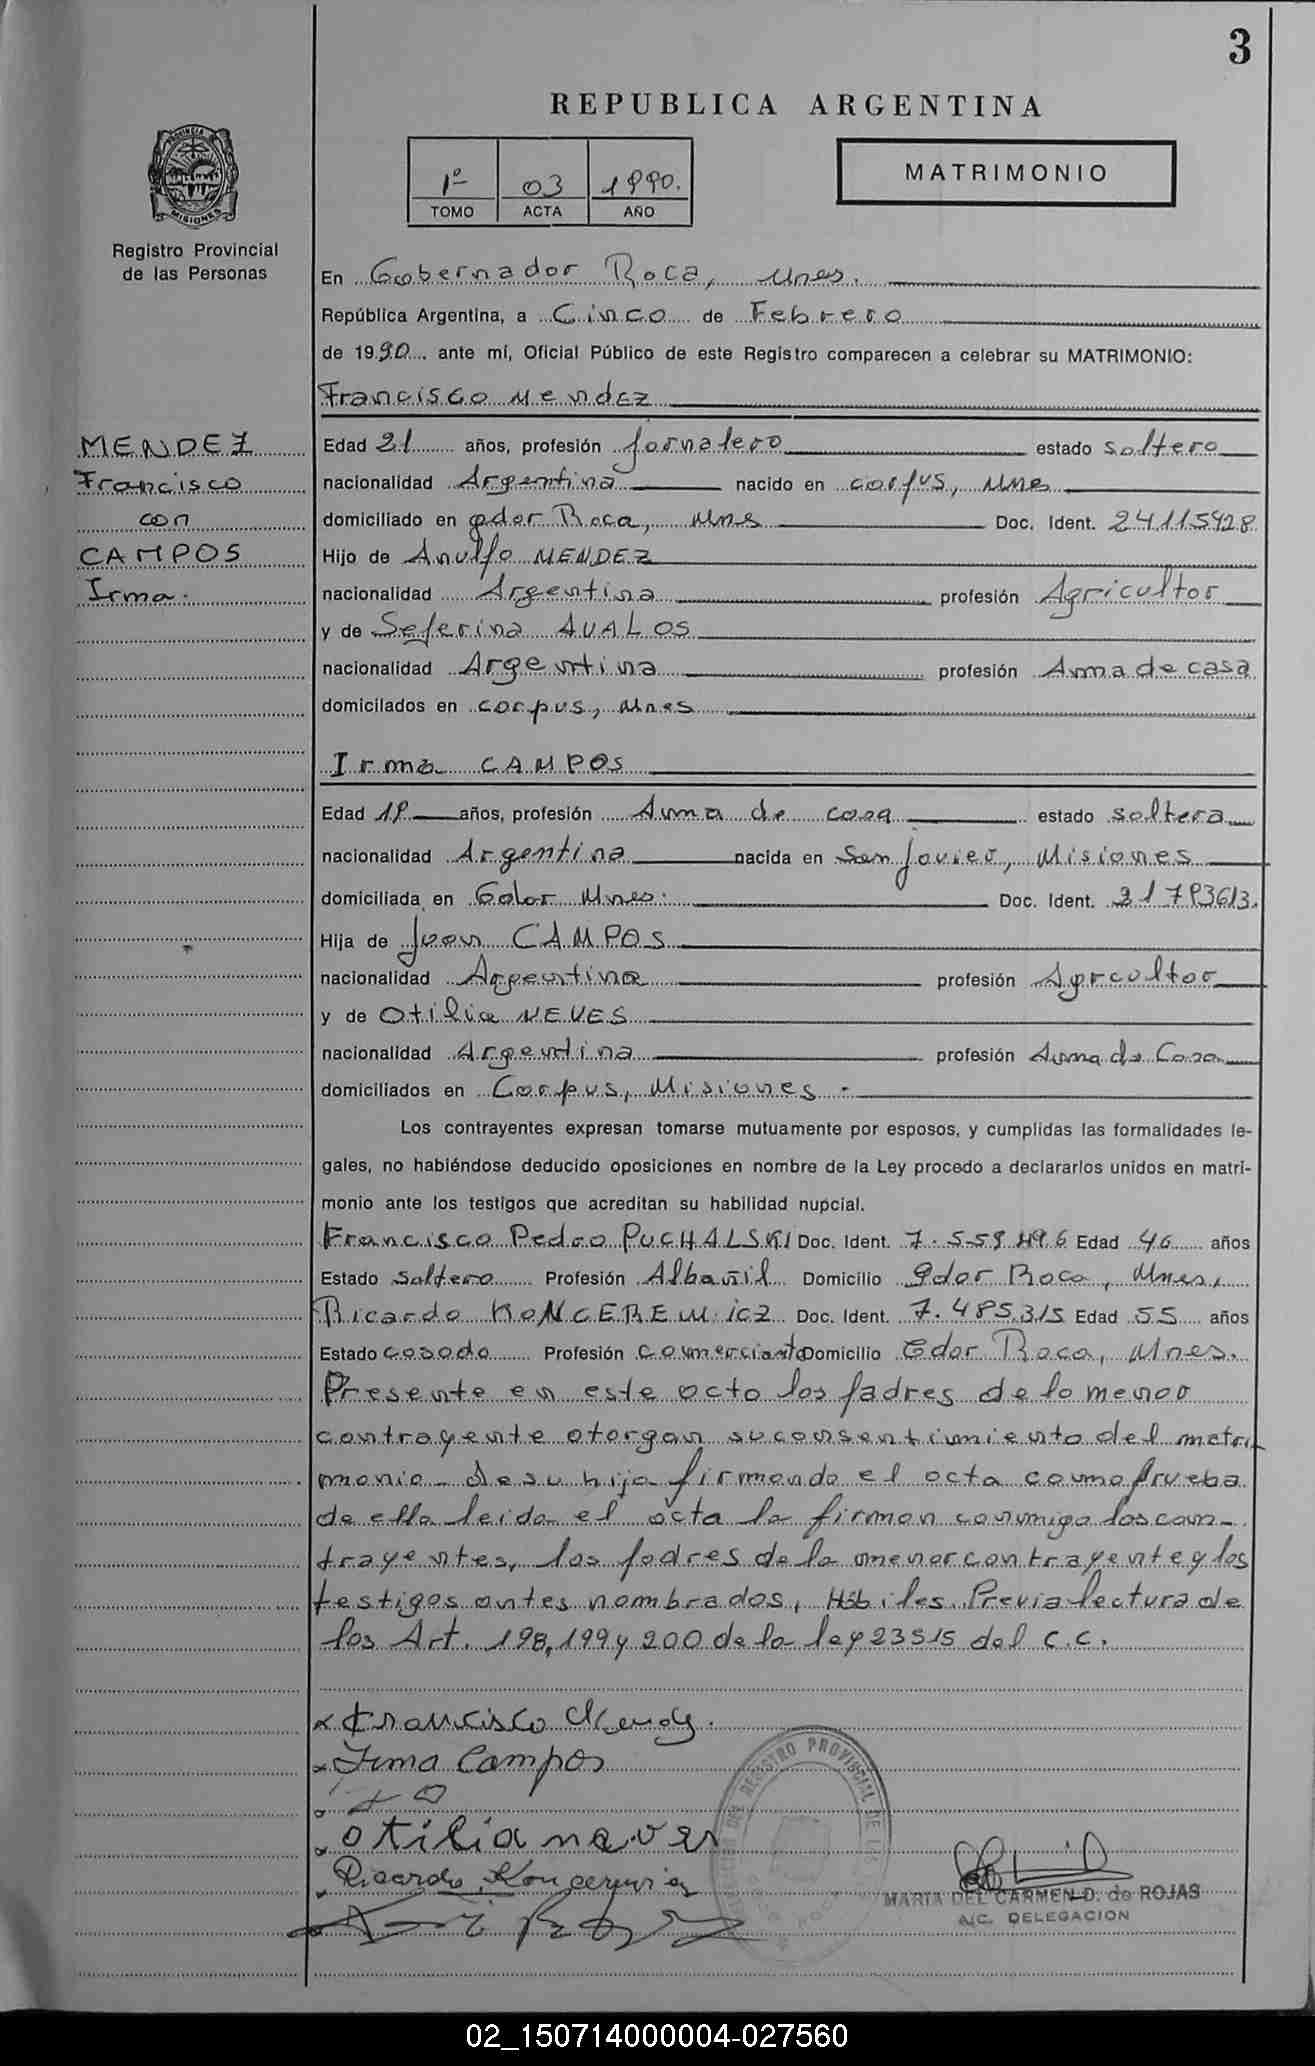 3
REPUBLICA ARGENTINA
1º 03 1990.
TOMO ACTA AÑO
MATRIMONIO
PROVINCIA DE MISIONES
Registro Provincial
de las Personas
En Gobernador Roca, Mnes.
República Argentina, a Cinco de Febrero
de 1990 ante mí, Oficial Público de este Registro comparecen a celebrar su MATRIMONIO:
Francisco Mendez
MENDEZ
Francisco
con
CAMPOS
Irma.
Edad 21 años, profesión Jornalero estado soltero
nacionalidad Argentina nacido en corpus, Mnes
domiciliado en gdor Roca, Mns Doc. Ident. 24115428
Hijo de Anulfo MENDEZ
nacionalidad Argentina profesión Agricultor
y de Seferina AVALOS
nacionalidad Argentina profesión Ama de casa
domicilados en corpus, Mnes
Irma CAMPOS
Edad años, profesión Ama de casa estado soltera
nacionalidad Argentina nacida en San Javier, Misiones
domiciliada en Mnes. Doc. Ident.
Hija de Juan CAMPOS
nacionalidad Argentina profesión Agrcultor
y de Otilia NEVES
nacionalidad Argentina profesión Ama de Casa
domiciliados en Corpus, Misiones -
Los contrayentes expresan tomarse mutuamente por esposos, y cumplidas las formalidades le-
gales, no habiéndose deducido oposiciones en nombre de la Ley procedo a declararlos unidos en matri-
monio ante los testigos que acreditan su habilidad nupcial.
Francisco Pedro PUCHALSKI Doc. Ident. Edad 46 años
Estado Soltero Profesión Albañil Domicilio Gdor Roca, Mnes,
Ricardo KONCEREWICZ Doc. Ident. 7.485.315 Edad 55 años
Estado casado Profesión comerciante Domicilio Gdor Roca, Mnes.
Presente en este acto los padres de la menor
contrayente otorgan su consentimiento del matri
monio de su hija firmando el acta como prueba
de ello leida el acta la firman conmigo los con-
trayentes, los padres de la menor contrayente y los
testigos antes nombrados, Hábiles. Previa lectura de
los Art. 198, 199 y 200 de la ley 23515 del c.c.
x Francisco Mendez.
x Irma Campos
otilia neves
Ricardo Koncerewicz
REGISTRO PROVINCIAL DE LAS
MARIA DEL CARMEN D. de ROJAS
A/C. DELEGACION
02_150714000004-027560